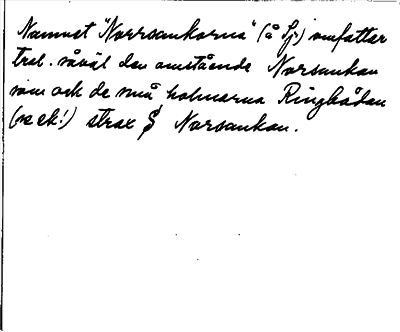 Namnet "Norrsankorna" (å Sj) omfattar
trol. såväl den omstående Norsankan
som ock de små holmarna Ringbådan
(se ek!) strax S Norsankan.